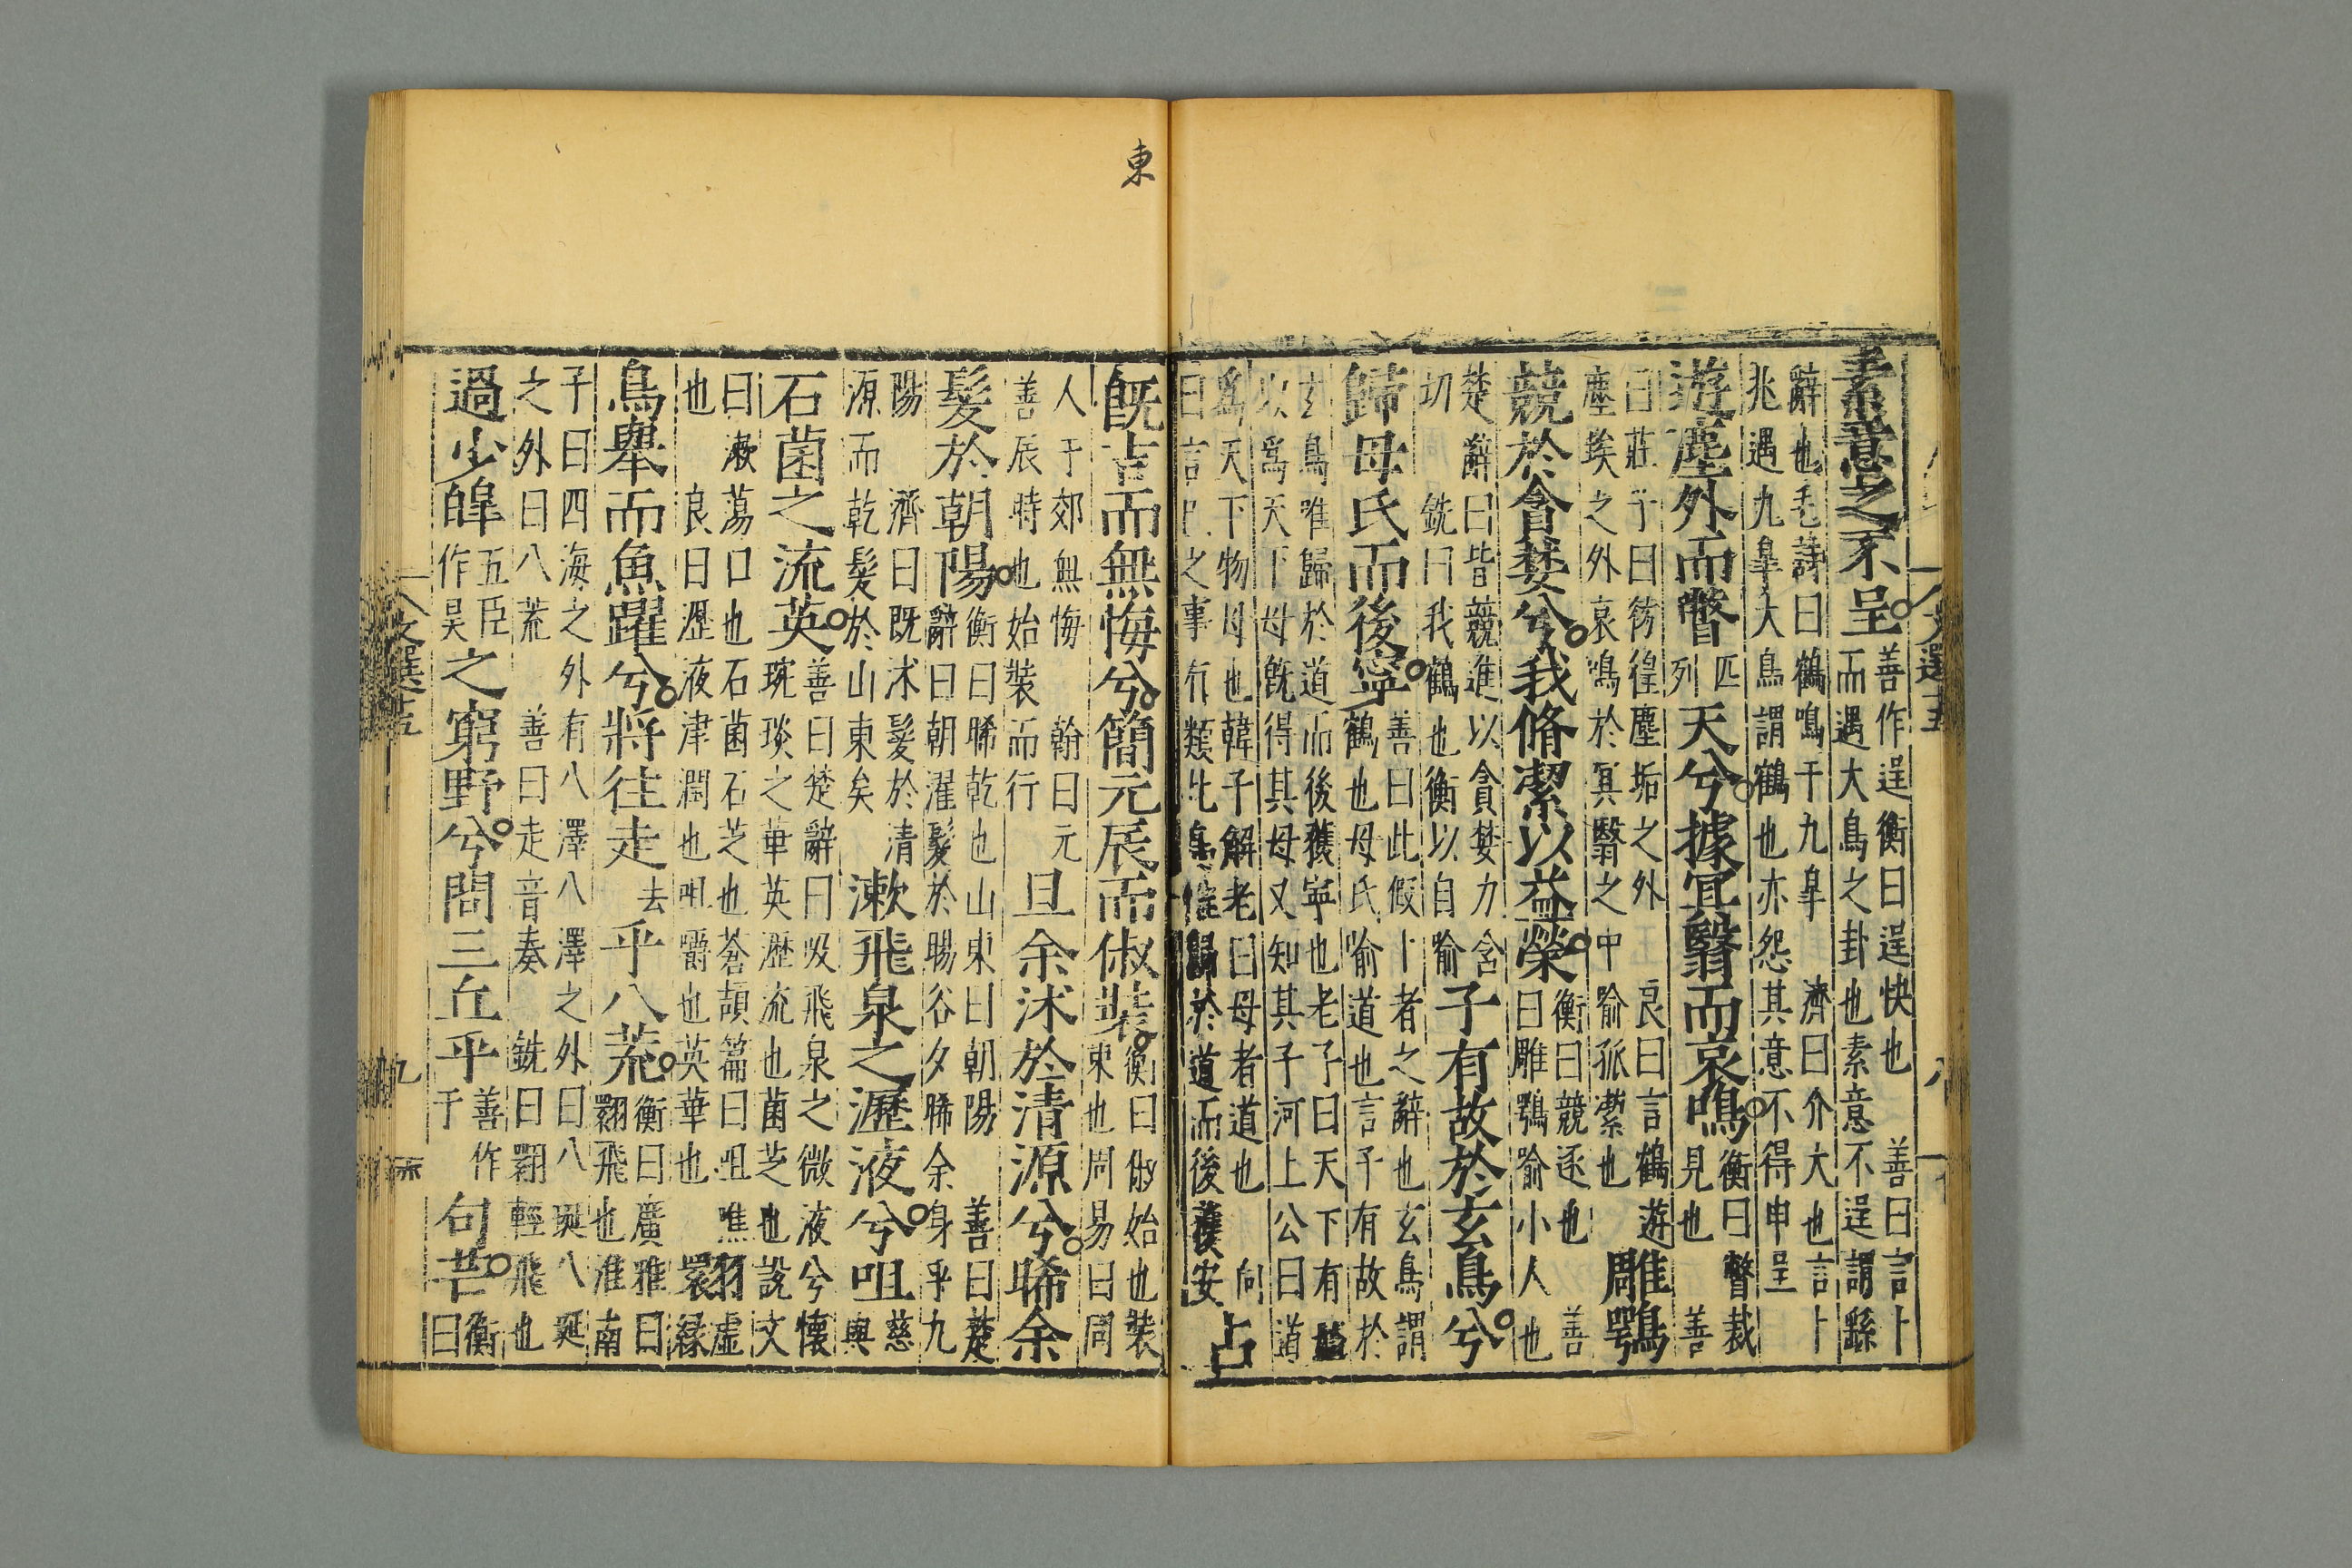 素意之不呈善作逞衡曰逞快也 善曰言卜
而遇大鳥之卦也素意不逞謂繇
辭也毛詩曰鶴鳴于九臯 濟曰介大也言卜
兆遇九臯大鳥謂鶴也亦怨其意不得申呈
遊塵外而瞥匹列天兮據冥翳而哀鳴衡曰瞥裁
見也 善
曰莊子曰彷徨塵垢之外 良曰言鶴遊
塵埃之外哀鳴於冥翳之中喻孤縈也雕鶚
競於貪婪兮我脩潔以益榮衡曰競逐也 善
曰雕鶚喻小人也
楚辭曰皆競進以貪婪力含
切 銑曰我鶴也衡以自喻子有故於玄鳥兮
歸母氏而後寧善曰此假卜者之辭也玄鳥謂
鶴也母氏喻道也言子有故於
玄鳥唯歸於道而後獲寧也老子曰天下有始
以爲天下母既得其母又知其子河上公曰道
爲天下物母也韓子解老曰母者道也 向
曰言卜之事有類此鳥惟歸於道而後獲安占
東
既吉而無悔兮簡元辰而俶裝衡曰俶始也裝
束也周易曰同
人于郊無悔 翰曰元
善辰時也始裝而行旦余沐於清源兮晞余
髮於朝陽衡曰晞乾也山東曰朝陽 善曰楚
辭曰朝濯髮於暘谷夕晞余身乎九
陽 濟曰既沐髮於清
源而乾髮於山東矣漱飛泉之瀝液兮咀慈與
石菌之流英善曰楚辭曰吸飛泉之微液兮懷
琬琰之華英瀝流也菌芝也說文
曰漱蕩口也石菌石芝也蒼頡篇曰咀噍
也 良曰瀝液津潤也咀嚼也英華也翾虛緣
鳥舉而魚躍兮將往走去乎八荒衡曰廣雅曰
翾飛也淮南
子曰四海之外有八澤八澤之外曰八埏八埏
之外曰八荒 善曰走音奏 銑曰翾輕飛也
過少皞五臣作昊之窮野兮問三丘乎善作于句芒衡
曰
文選十五
九